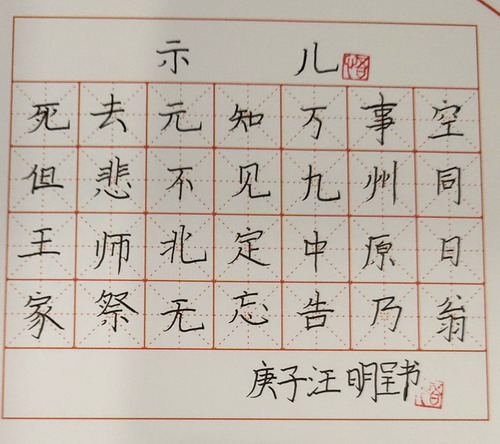 示儿
死去元知万事空
但悲不见九州同
王师北定中原日
家祭无忘告乃翁
庚子汪明呈书